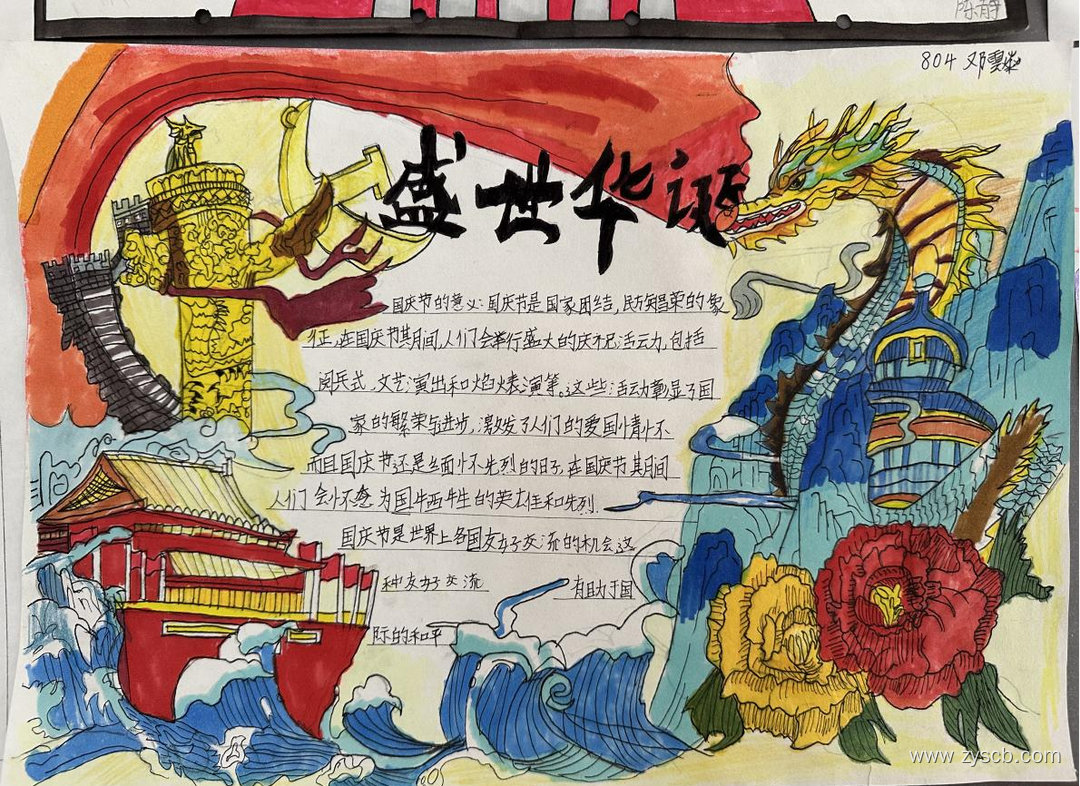 陈静
804 邓
盛世华诞
国庆节的意义:国庆节是国家团结,民族昌荣的象
征,在国庆节其月间,人们会举行盛大的庆祝活动,包括
阅兵式,文艺演出和焰火表演等。这些活动彰显了国
家的繁荣与进步,激发了人们的爱国情怀
而且国庆节还是缅怀先烈的日子,在国庆节其月间
人们会怀念为国牺牲的英雄和先烈.
国庆节是世界上各国友好交流的机会这
种友好交流 有助于国
际的和平
www.zyscb.com